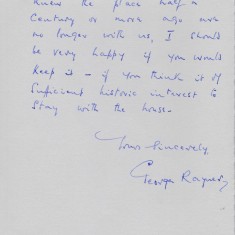 knew the place half a
century or more ago are
no longer with us, I should
be very happy if you would
keep it - if you think it of
sufficient historic interest to
stay with the house.
Yours sincerely,
George